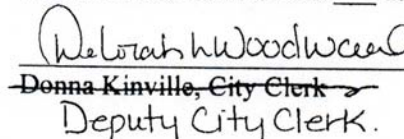 Deborah L Woodward
Donna Kinville, City Clerk
Deputy City Clerk.